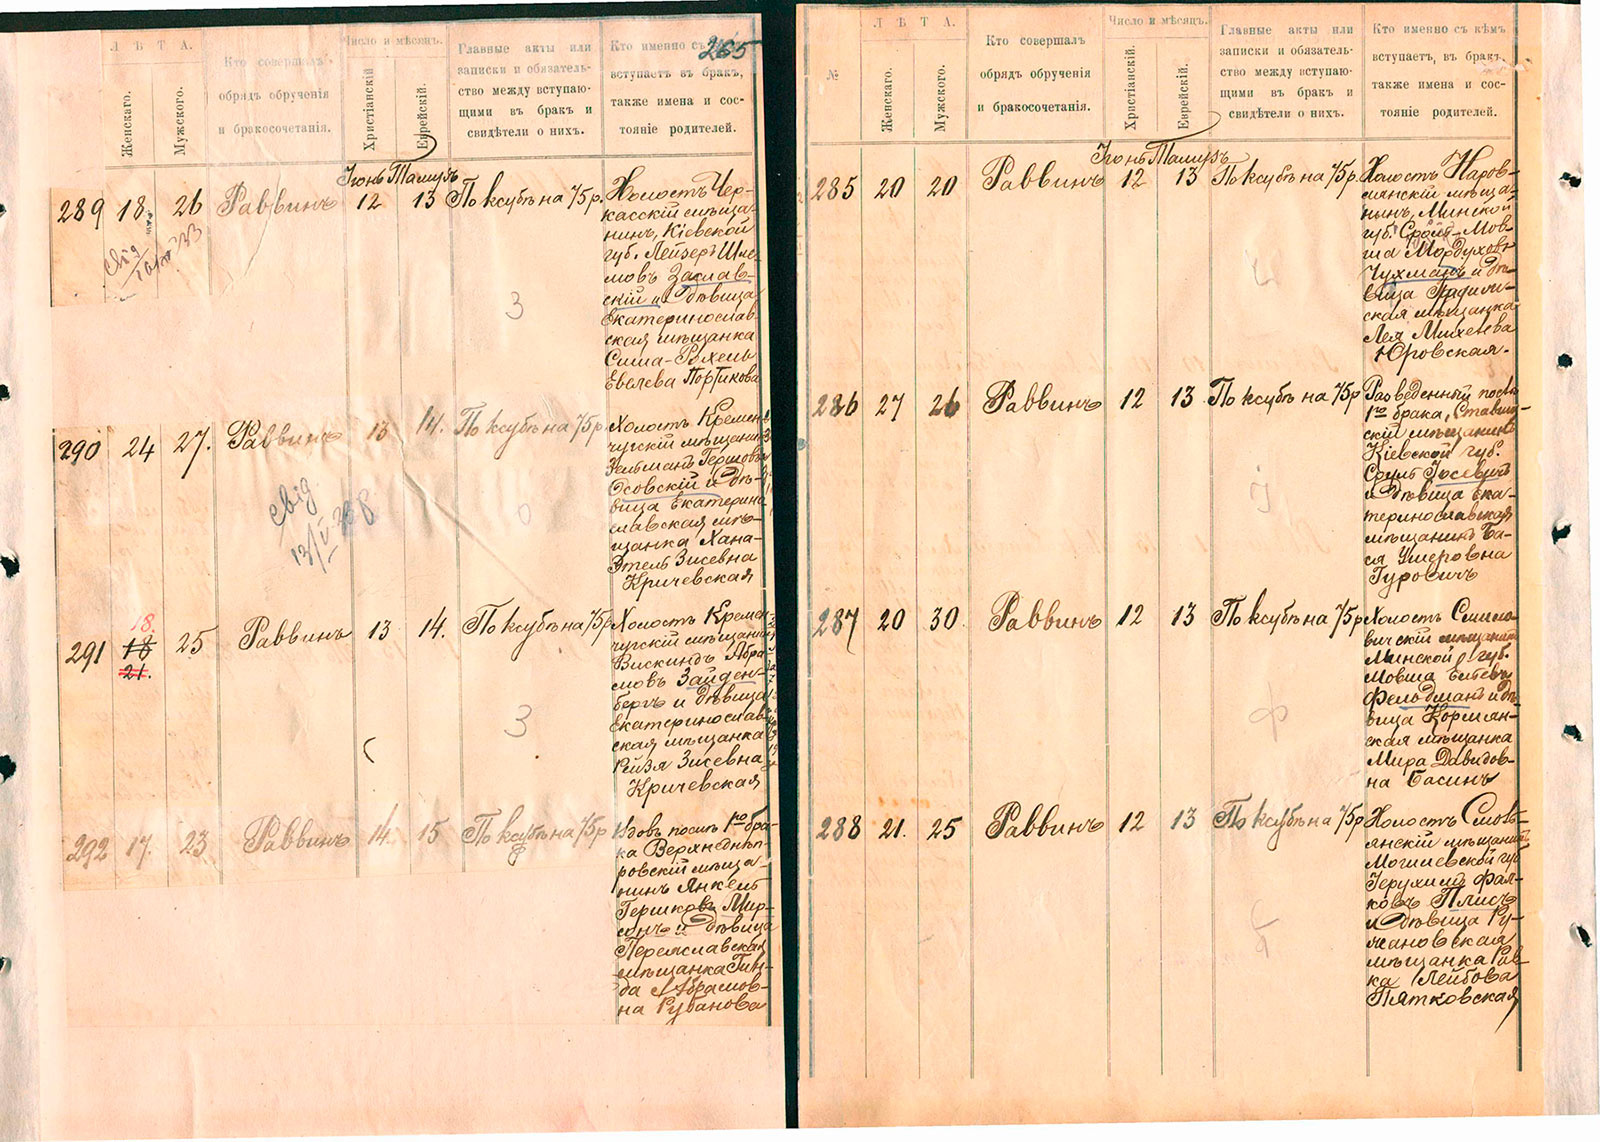 265
Л Ѣ Т А.
Женскаго.
Мужского.
Кто совершалъ
обрядъ обрученія
и бракосочетанія.
Число и мѣсяцъ.
Христіанскій
Еврейскій.
Главные акты или
записки и обязатель-
ство между вступаю-
щими въ бракъ и
свидѣтели о нихъ.
Кто именно съ
вступаетъ въ бракъ,
также имена и сос-
тояніе родителей.
Іюнь Тамузъ
289 18. 26 Раввинъ 12 13 По ксубѣ на 75 р.
Холостъ Чер-
касскій мѣща-
нинъ, Кіевской
губ. Лейзеръ Шле-
мовъ Заслав-
скій и дѣвица
Екатеринослав-
ская мѣщанка
Сима-Рохель
Евелева Портикова
3
290 24 27. Раввинъ 13 14. По ксубѣ на 75 р.
Холостъ Кремен-
чугскій мѣщанинъ
Зельманъ Гершовъ
Осовскій и дѣ-
вица Екатерино-
славская мѣ-
щанка Хана-
Этель Зисевна
Кричевская
О
18.
291 18 25 Раввинъ 13 14. По ксубѣ на 75 р.
21.
Холостъ Кремен-
чугскій мѣщанинъ
Зискиндъ Абра-
мовъ Зайден-
бергъ и дѣвица
Екатеринослав-
ская мѣщанка
Рейзя Зисевна
Кричевская
З
292 17. 23 Раввинъ 14. 15 По ксубѣ на 75 р
послѣ 1го бра-
ка Верхнеднѣп-
ровскій мѣща-
нинъ Янкель
Гершковъ
и дѣвица
Переяславская
мѣщанка Гин-
да Абрамов-
на Рубанова
№
Л Ѣ Т А.
Женскаго.
Мужского.
Кто совершалъ
обрядъ обрученія
и бракосочетанія.
Число и мѣсяцъ.
Христіанскій
Еврейскій.
Главные акты или
записки и обязатель-
ство между вступаю-
щими въ бракъ и
свидѣтели о нихъ.
Кто именно съ кѣмъ
вступаетъ, въ бракъ,
также имена и сос-
тояніе родителей.
Іюнь Тамузъ
285 20 20 Раввинъ 12 13 По ксубѣ на 75 р.
Холостъ Наров-
лянскій мѣща-
нинъ, Минской
губ. Сроль-Мов-
ша Мордуховъ
Чухманъ и дѣ-
вица
ская мѣщанка
Лея Михелева
Юровская.
286 27 26 Раввинъ 12 13 По ксубѣ на 75 р
Разведенный послѣ
1го брака, Ставищ-
скій мѣщанинъ
Кіевской губ.
Сруль Іосевичъ
и дѣвица Ека-
теринославская
мѣщанка Ба-
ся Ушеровна
Гуровичъ
287 20 30. Раввинъ 12 13 По ксубѣ на 75 р
Холостъ Смило-
вичскій мѣщанинъ
Минской губ.
Мовша
Фельдманъ и дѣ-
вица Кормян-
ская мѣщанка
Мира Давидов-
на Басинъ
ф
288 21. 25 Раввинъ 12 13 По ксубѣ на 75 р
Холостъ Смоль-
янскій мѣщанинъ
Могилевской губ
Іерухимъ Фал-
ковъ Плисъ
и дѣвица Ру-
жановская
мѣщанка Рив-
ка Лейбова
Пятковская